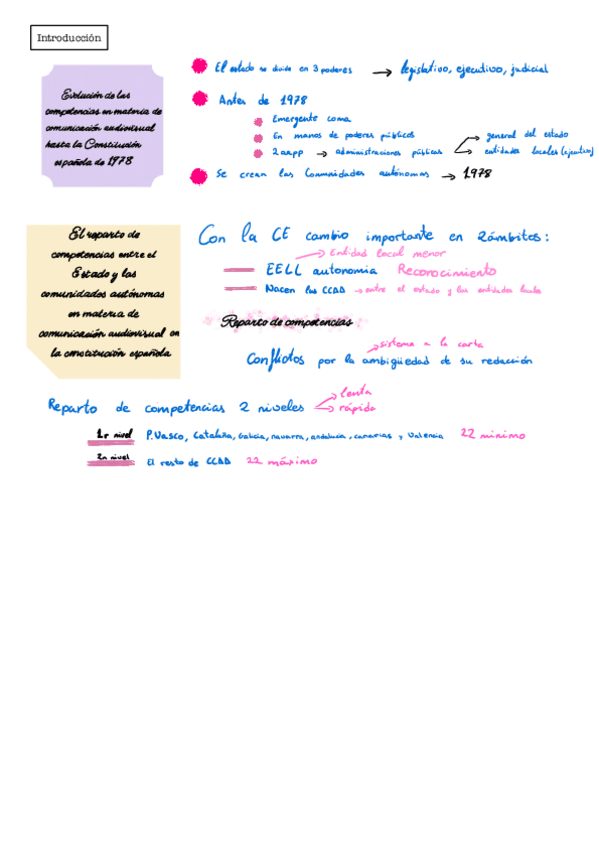 Introducción
Evolución de las
competencias en materia de
comunicación audiovisual
hasta la Constitución
española de 1978
El estado se divide en 3 poderes → legislativo, ejecutivo, judicial
Antes de 1978
Emergente como
En manos de poderes públicos
2 aapp → administraciones públicas → general del estado
→ entidades locales (ejecutivo)
Se crean las Comunidades autónomas → 1978
El reparto de
competencias entre el
Estado y las
comunidades autónomas
en materia de
comunicación audiovisual en
la constitución española
Con la CE cambio importante en 2 ámbitos:
→ Entidad local menor
EELL autonomia Reconocimiento
Nacen las CCAA → entre el estado y las entidades locales
Reparto de competencias
→ sistema a la carta
Conflictos por la ambigüedad de su redacción
Reparto de competencias 2 niveles → lenta
→ rápida
1r nivel P.Vasco, Cataluña, Galicia, navarra, andalucia, canarias y Valencia 22 minimo
2n nivel El resto de CCAA 22 máximo